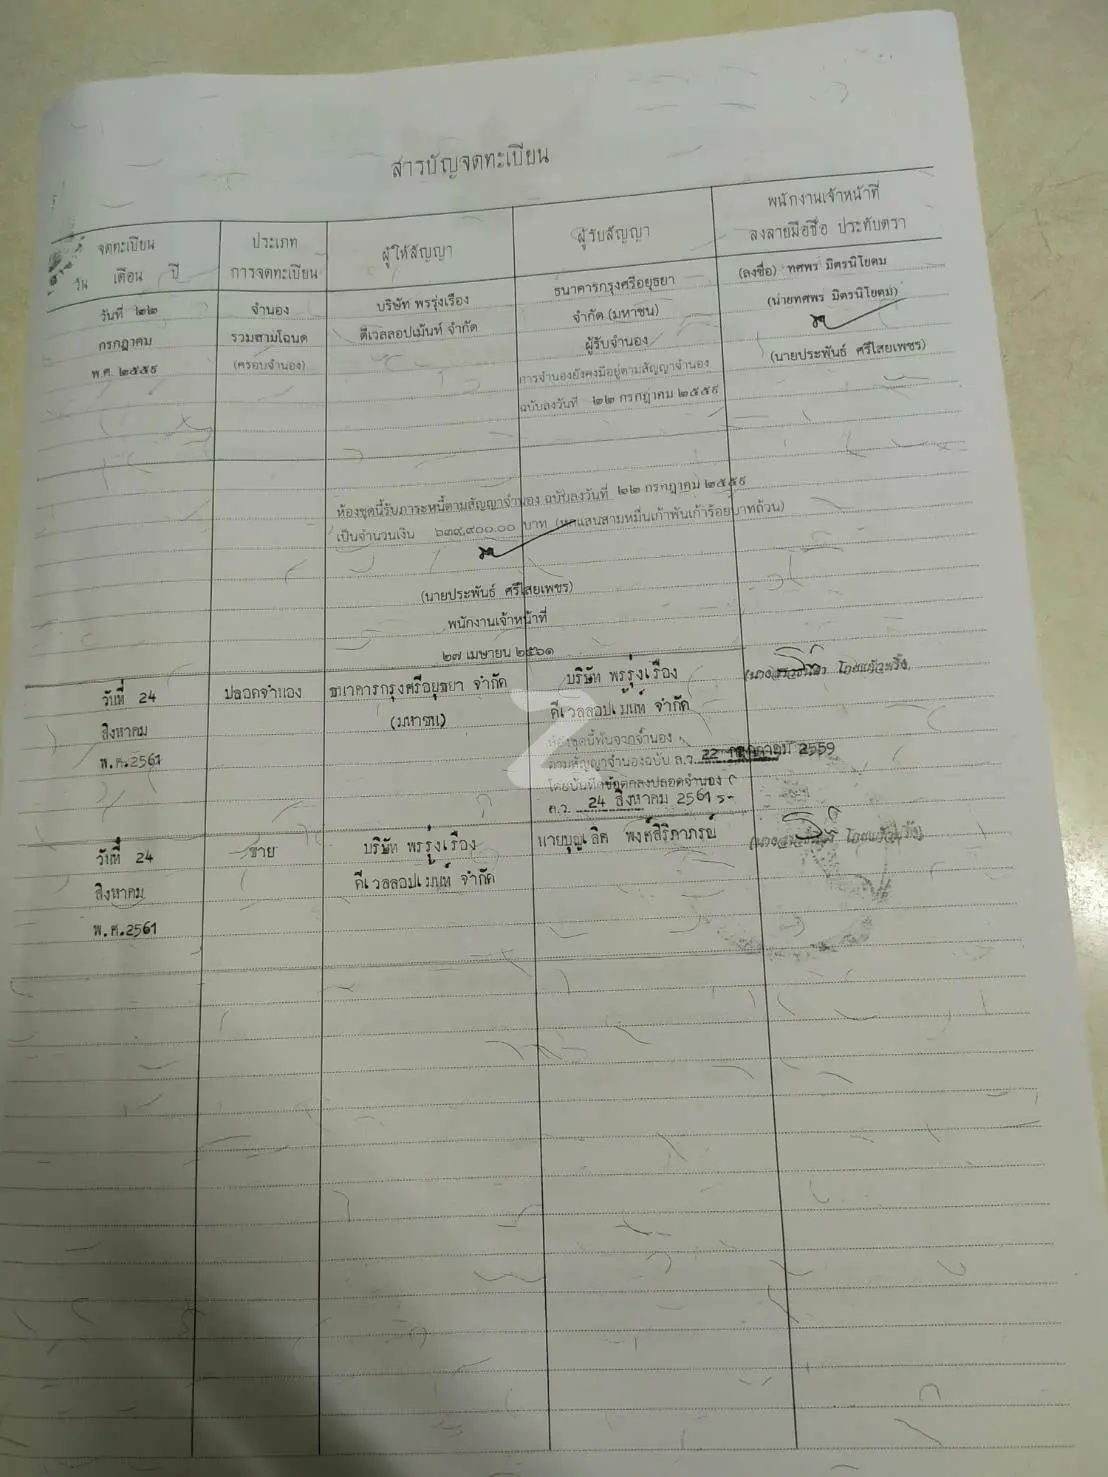 สารบัญจดทะเบียน
จดทะเบียน
วัน เดือน ปี
ประเภท
การจดทะเบียน
ผู้ให้สัญญา
ผู้รับสัญญา
พนักงานเจ้าหน้าที่
ลงลายมือชื่อ ประทับตรา
วันที่ ๒๒
กรกฎาคม
พ.ศ. ๒๕๕๙
จำนอง
รวมสามโฉนด
(ครอบจำนอง)
บริษัท พรรุ่งเรือง
ดีเวลลอปเม้นท์ จำกัด
ธนาคารกรุงศรีอยุธยา
จำกัด (มหาชน)
ผู้รับจำนอง
การจำนองยังคงมีอยู่ตามสัญญาจำนอง
ฉบับลงวันที่ ๒๒ กรกฎาคม ๒๕๕๙
(ลงชื่อ) ทศพร มิตรนิโยดม
(นายทศพร มิตรนิโยดม)
(นายประพันธ์ ศรีไสยเพชร)
ห้องชุดนี้รับภาระหนี้ตามสัญญาจำนอง ฉบับลงวันที่ ๒๒ กรกฎาคม ๒๕๕๙
เป็นจำนวนเงิน ๖๓๙,๙๐๐.๐๐ บาท (หกแสนสามหมื่นเก้าพันเก้าร้อยบาทถ้วน)
(นายประพันธ์ ศรีไสยเพชร)
พนักงานเจ้าหน้าที่
๒๗ เมษายน ๒๕๖๑
วันที่ 24
สิงหาคม
พ.ศ.2561
ปลอดจำนอง
ธนาคารกรุงศรีอยุธยา จำกัด
(มหาชน)
บริษัท พรรุ่งเรือง
ดีเวลลอปเม้นท์ จำกัด
ห้องชุดนี้พ้นจากจำนอง
ตามสัญญาจำนองฉบับ ล.ว. 22 กรกฎาคม 2559
โดยบันทึกข้อตกลงปลอดจำนอง
ล.ว. 24 สิงหาคม 2561
วันที่ 24
สิงหาคม
พ.ศ.2561
ขาย
บริษัท พรรุ่งเรือง
ดีเวลลอปเม้นท์ จำกัด
นายบุญเลิศ พงศ์สิริภาภรณ์
Z